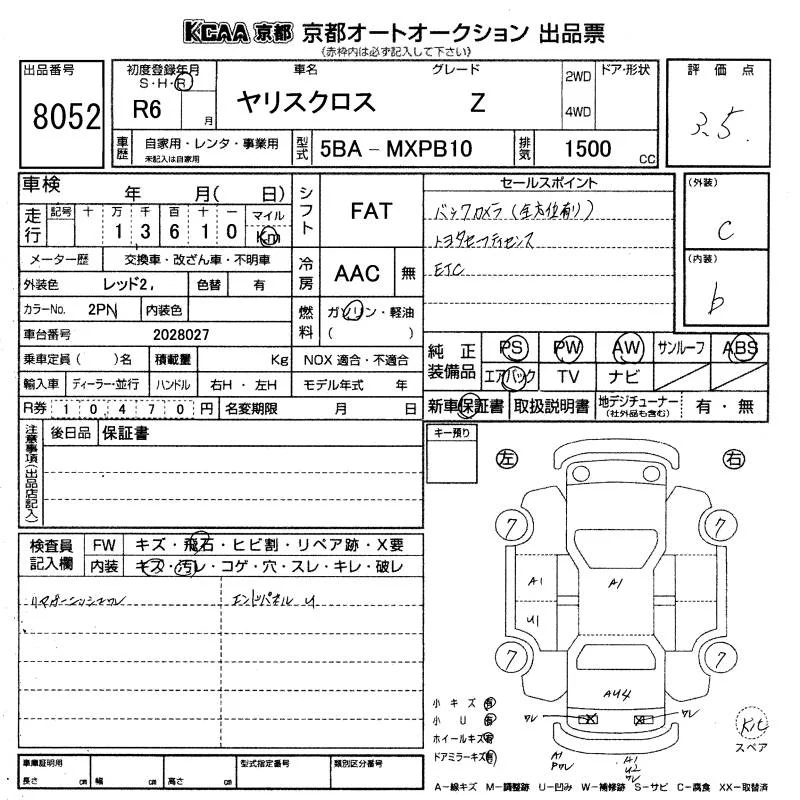 KCAA 京都 京都オートオークション 出品票
(赤枠内は必ず記入して下さい)
出品番号
8052
初度登録年月
S・H・R
R6
月
車名
ヤリスクロス
グレード
Z
2WD
4WD
ドア・形状
評価点
3.5
車歴
自家用・レンタ・事業用
未記入は自家用
型式
5BA－MXPB10
排気
1500
CC
車検
年 月( 日)
走行
記号 十 万 千 百 十 一 マイル
1 3 6 1 0 Km
メーター歴 交換車・改ざん車・不明車
外装色 レッド2, 色替 有
カラーNo. 2PN 内装色
車台番号 2028027
乗車定員( )名 積載量 Kg
輸入車 ディーラー・並行 ハンドル 右H・左H
R券 10470円 名変期限 月 日
シフト
FAT
冷房
AAC 無
燃料
ガソリン・軽油
( )
NOX 適合・不適合
モデル年式 年
セールスポイント
バックカメラ(全方位有り)
トヨタセーフティセンス
ETC
(外装)
C
(内装)
b
純正装備品
PS PW AW サンルーフ ABS
エアバック TV ナビ
新車保証書 取扱説明書 地デジチューナー
(社外品も含む)
有・無
注意事項(出品店記入)
後日品 保証書
キー預り
左
右
検査員記入欄
FW キズ・飛石・ヒビ割・リペア跡・X要
内装 キズ・汚レ・コゲ・穴・スレ・キレ・破レ
エンドパネル U
7
7
A1
A1
U1
7
7
AU4
ワレ
ワレ
小キズ有
小U有
ホイールキズ有
ドアミラーキズ有
A1
Pワレ
A1
U2
ワレ
Kit
スペア
車庫証明用
長さ cm 幅 cm 高さ cm
型式指定番号
類別区分番号
A－線キズ M－調整跡 U－凹み W－補修跡 S－サビ C－腐食 XX－取替済